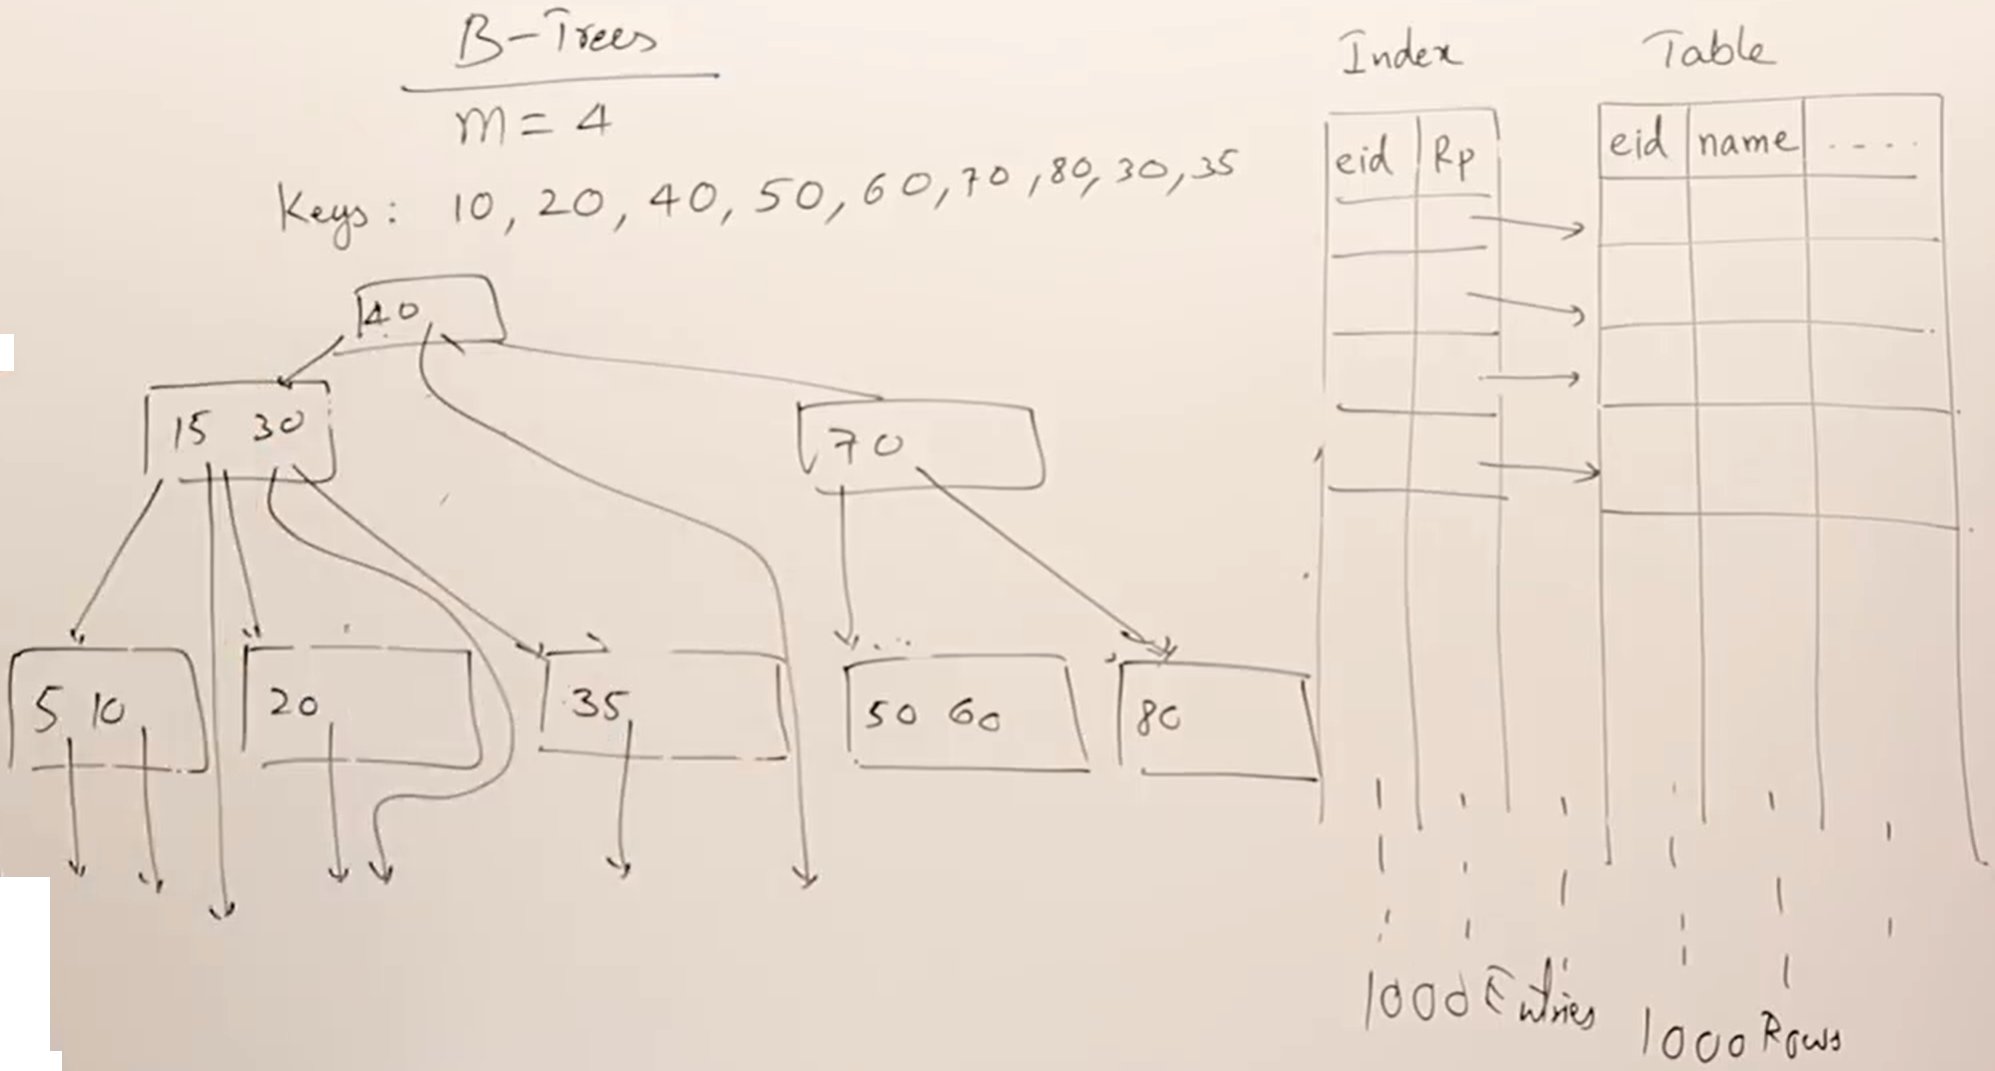 B-Trees
m = 4
Keys: 10, 20, 40, 50, 60, 70, 80, 30, 35
40
15 30
70
5 10
20
35
50 60
80
Index
eid Rp
1000 Entries
Table
eid name ....
1000 Rows